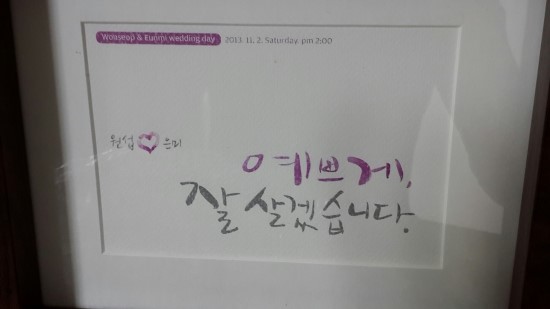 Wonseop & Eunmi wedding day 2013. 11. 2. Saturday. pm 2:00
원섭 은미
예쁘게,
잘 살겠습니다.